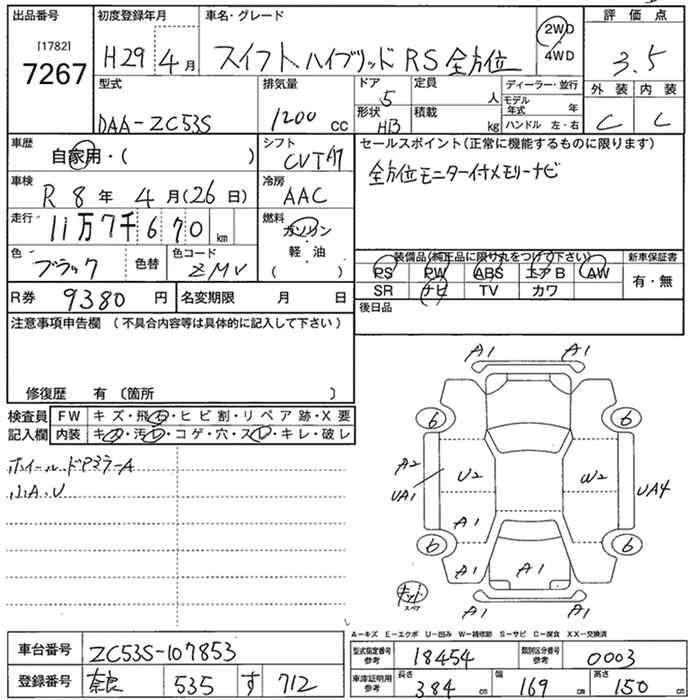 出品番号
[1782]
7267
初度登録年月
H29年4月
車名・グレード
スイフト ハイブリッド RS 全方位
2WD
4WD
評価点
3.5
外装 内装
C C
型式
DAA-ZC53S
排気量
1200 cc
ドア
5
形状
HB
定員
人
積載
kg
ディーラー・並行
モデル年式 年
ハンドル 左・右
車歴
自家用・( )
シフト
CVT A7
車検
R 8 年 4 月(26 日)
冷房
AAC
走行
11万7千670 km
燃料
ガソリン
軽・油
( )
色
ブラック
色替
色コード
ZMV
R券 9380 円
名変期限 月 日
セールスポイント(正常に機能するものに限ります)
全方位モニター付メモリーナビ
装備品(純正品に限り丸をつけて下さい)
PS PW ABS エアB AW
SR ナビ TV カワ
新車保証書
有・無
後日品
注意事項申告欄 (不具合内容等は具体的に記入して下さい)
修復歴 有〔箇所 〕
検査員記入欄
FW キズ・飛石・ヒビ割・リペア跡・X要
内装 キズ・汚レ・コゲ・穴・スレ・キレ・破レ
ホイール、ドアミラーA
小A、U
A1 A1
6 6
A2
UA1
U2 W2
UA4
A1
6 6
A1 A1 A1
キット
スペア
A1 A1
A-キズ E-エクボ U-凹み W-補修跡 S-サビ C-腐食 XX-交換済
車台番号 ZC53S-107853
登録番号 奈良 535 す 712
型式指定番号参考 18454
類別区分番号参考 0003
車庫証明用参考
長さ 384 cm
幅 169 cm
高さ 150 cm